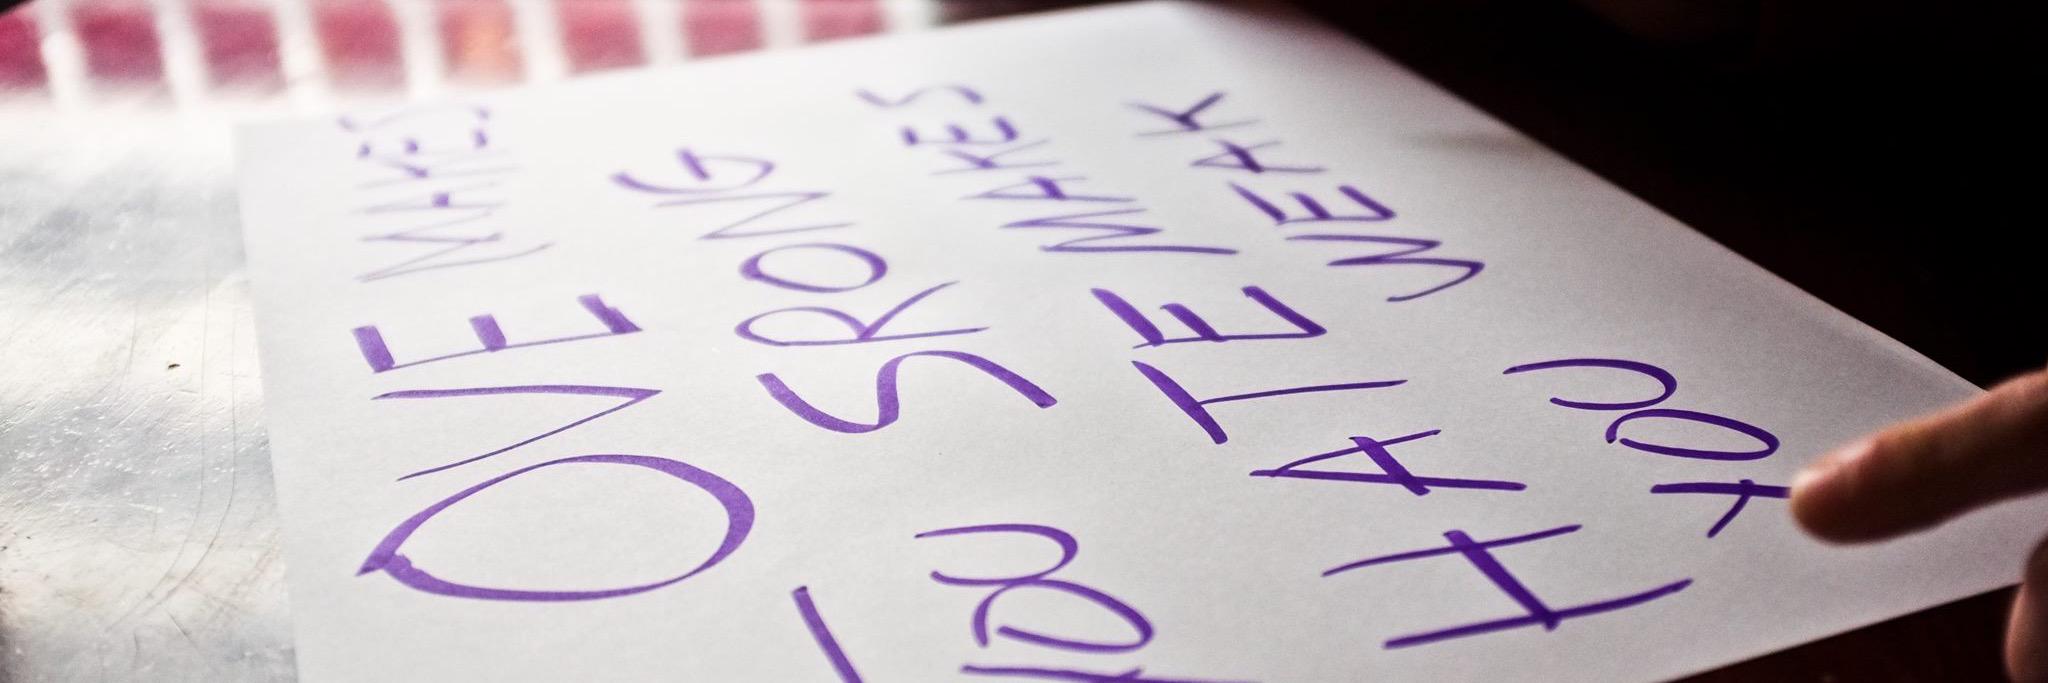 LOVE MAKES
YOU SRONG
HATE MAKES
YOU WEAK